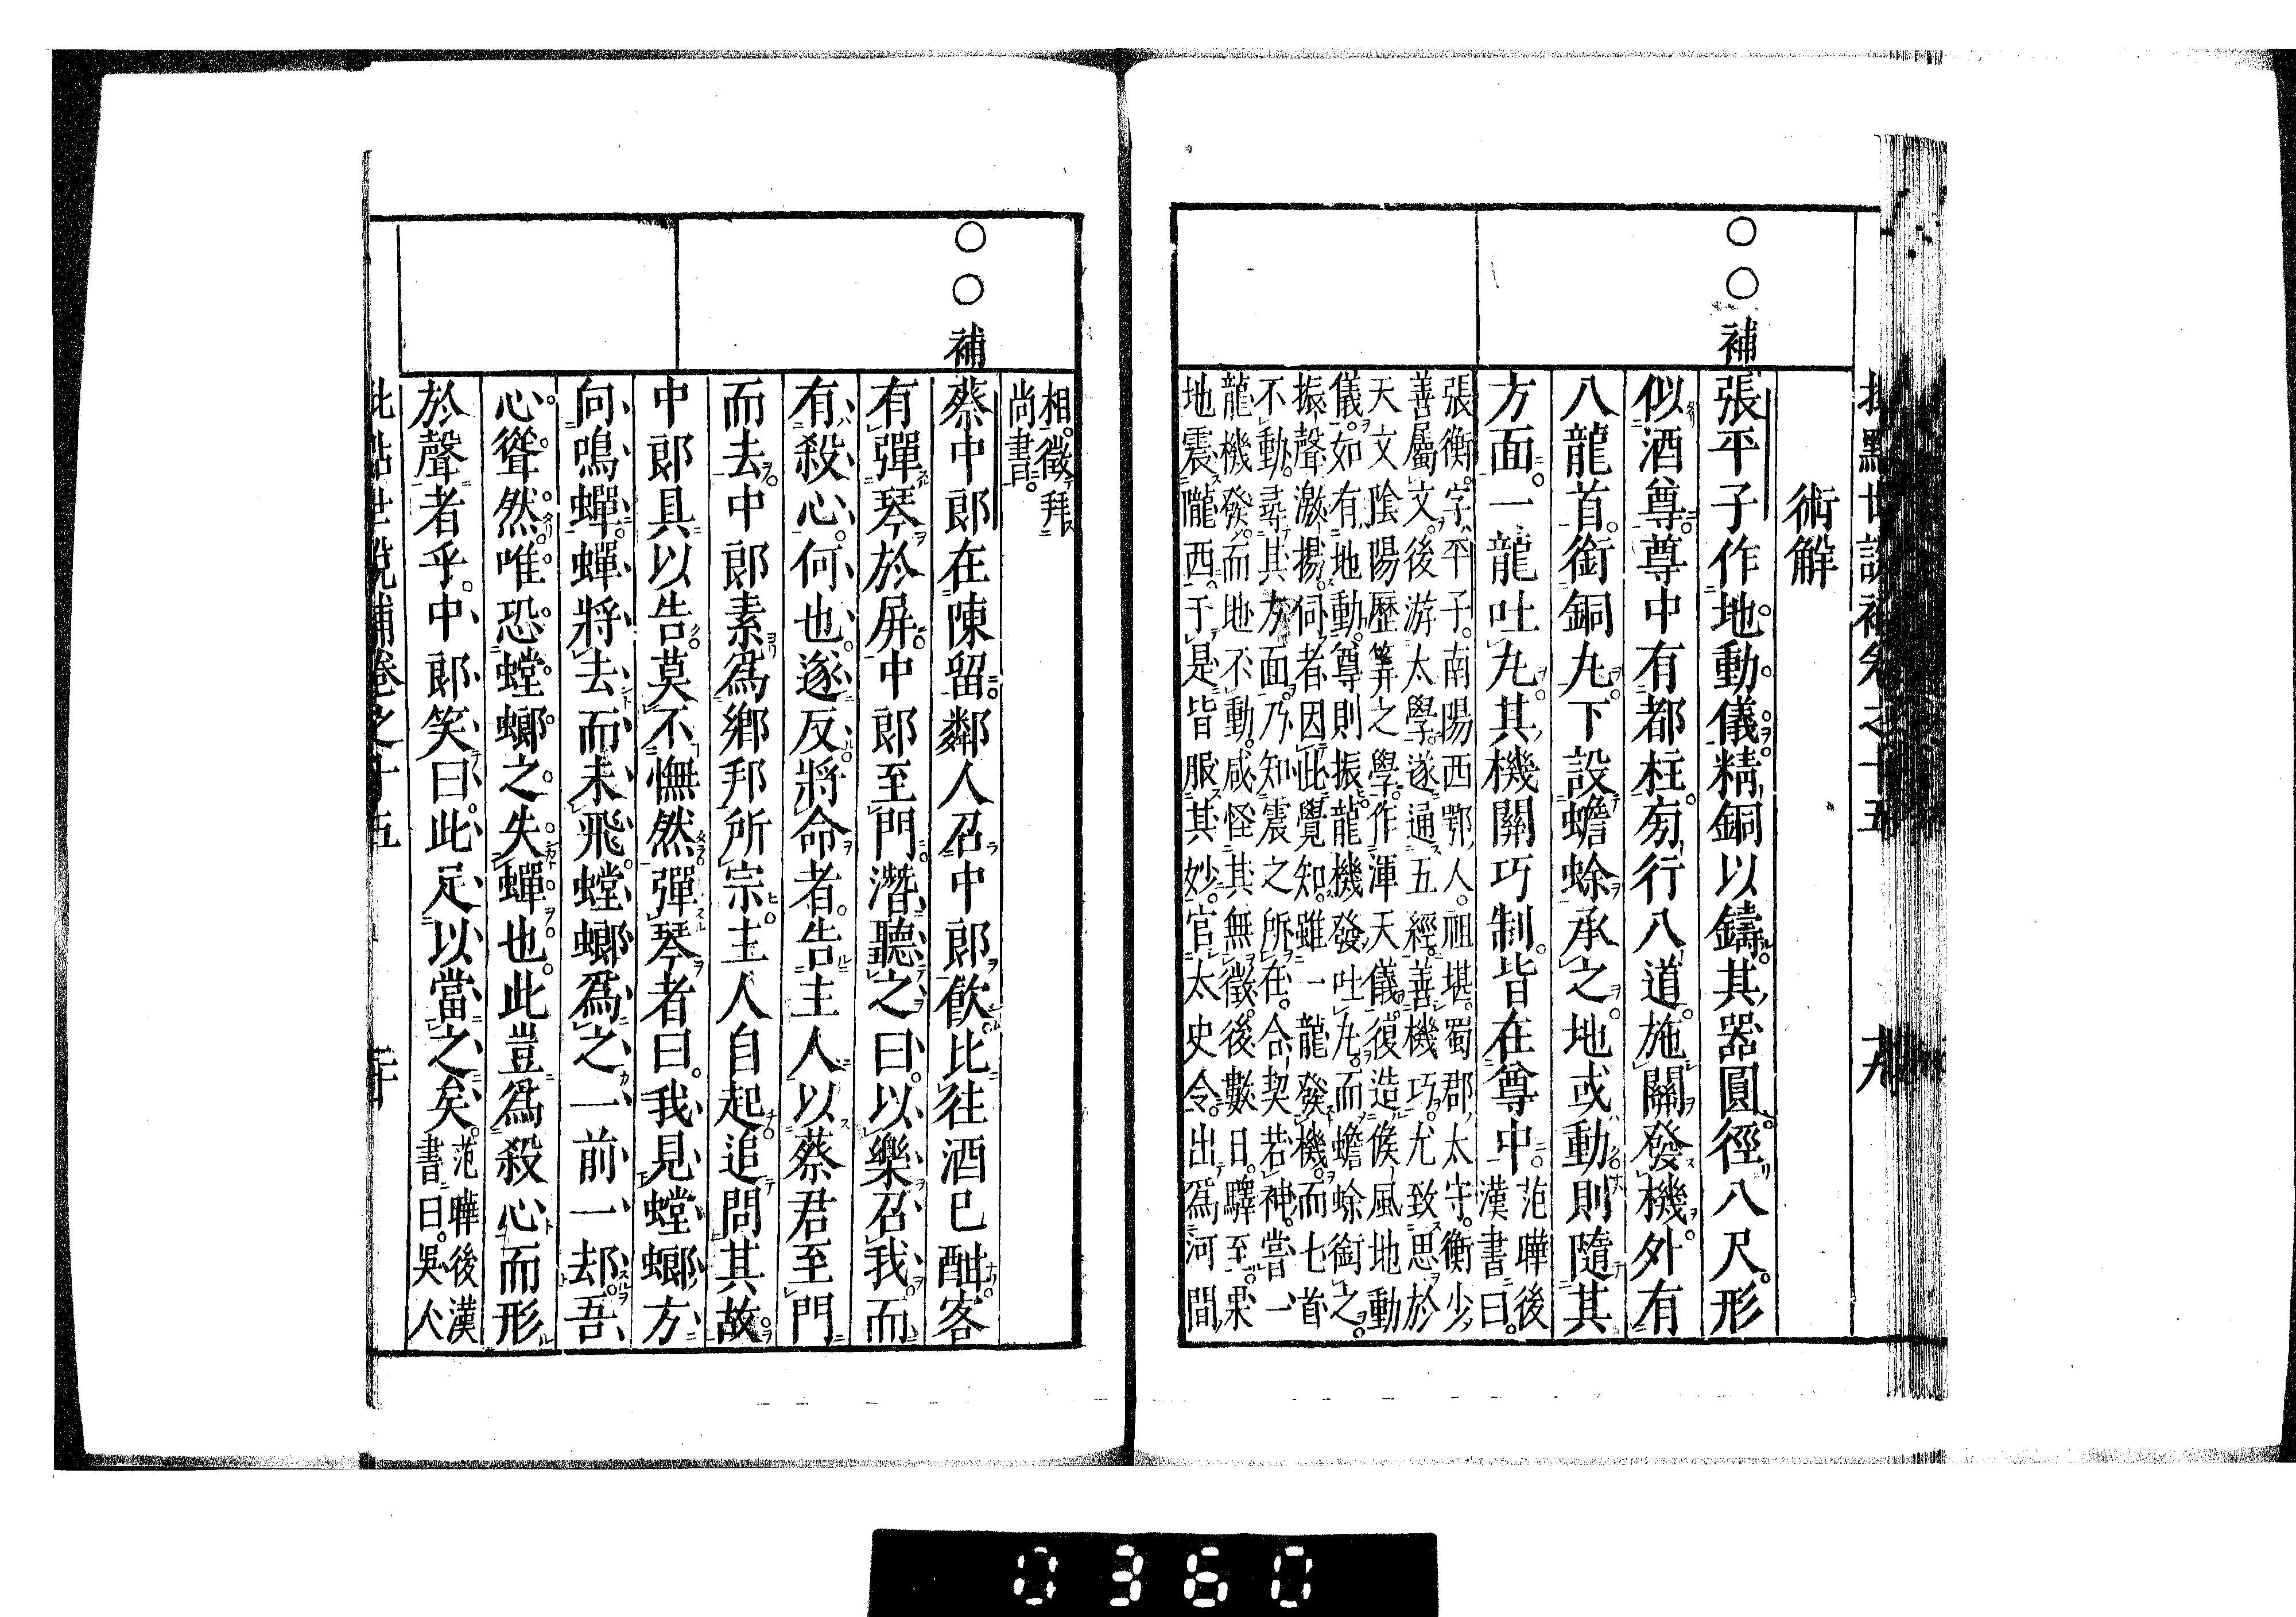 術解
○○補
張平子作地動儀精銅以鑄其器圓徑八尺形
似酒尊尊中有都柱㫄行八道施關發機外有
八龍首銜銅丸下設蟾蜍承之地或動則隨其
方面一龍吐丸其機關巧制皆在尊中范曄後
漢書曰
張衡字平子南陽西鄂人祖堪蜀郡太守衡少
善屬文後游太學遂通五經善機巧尤致思於
天文陰陽歷筭之學作渾天儀復造候風地動
儀如有地動尊則振龍機發吐丸而蟾蜍銜之
振聲激揚伺者因此覺知雖一龍發機而七首
不動尋其方面乃知震之所在合契若神嘗一
龍機發而地不動咸怪其無徵後數日驛至果
地震隴西于是皆服其妙官太史令出爲河間
相徵拜
尚書
○○補
蔡中郎在陳留鄰人召中郎飲比往酒已酣客
有彈琴於屏中郎至門潛聽之曰以樂召我而
有殺心何也遂反將命者告主人以蔡君至門
而去中郎素爲鄉邦所宗主人自起追問其故
中郎具以告莫不憮然彈琴者曰我見螳螂方
向鳴蟬蟬將去而未飛螳螂爲之一前一却吾
心聳然唯恐螳螂之失蟬也此豈爲殺心而形
於聲者乎中郎笑曰此足以當之矣范曄後漢
書曰吳人
0360